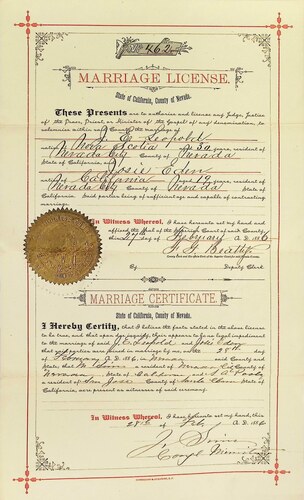 No. 462
MARRIAGE LICENSE.
State of California, County of Nevada.
These Presents are to authorize and license any Judge, Justice
of the Peace, Priest, or Minister of the Gospel of any denomination, to
solemnize within said County the marriage of
J. E. Leopold
native of Nova Scotia aged 30 years, resident of
Nevada City County of Nevada
State of California and
Josie Eden
native of California aged 19 years, resident of
Nevada City County of Nevada
State of California. Said parties being of sufficient age and capable of contracting
marriage.
In Witness Whereof, I have hereunto set my hand and
affixed the Seal of the Superior Court of said County,
this 27 day of February A. D. 1886
F. G. Beatty
County Clerk
By
Deputy Clerk
MARRIAGE CERTIFICATE.
State of California, County of Nevada.
I Hereby Certify, that I believe the facts stated in the above license
to be true, and that upon due inquiry, there appears to be no legal impediment
to the marriage of said J. E. Leopold and Josie Eden
that said parties were joined in marriage by me, on the 28th day
of February 1886, in
said County and
State; that
a resident of
County of
Nevada State of California, and
a resident of San Jose County of Santa Clara State of
California, were present as witnesses of said ceremony.
In Witness Whereof, I have hereunto set my hand, this
28th day of Feb A. D. 1886
J. Sims